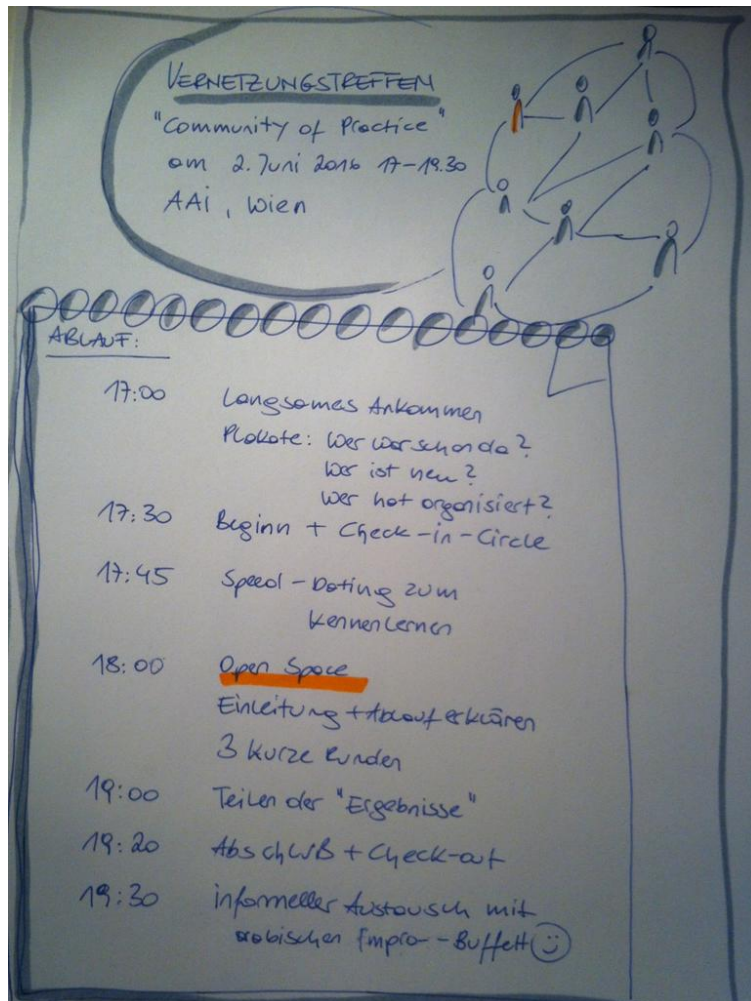 VERNETZUNGSTREFFEN
"Community of Practice"
am 2. Juni 2016 17-19.30
AAI, Wien
ABLAUF:
17:00 Langsames Ankommen
Plakate: Wer war schon da?
Wer ist neu?
Wer hat organisiert?
17:30 Beginn + Check-in-Circle
17:45 Speed-Dating zum
Kennenlernen
18:00 Open Space
Einleitung + Ablauf erklären
3 kurze Runden
19:00 Teilen der "Ergebnisse"
19:20 Abschluß + Check-out
19:30 informeller Austausch mit
arabischen Impro-Buffett